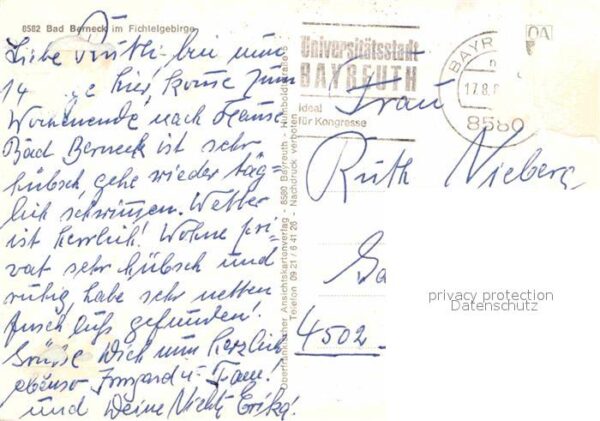 8582 Bad Berneck im Fichtelgebirge
Liebe Ruthi, bin nun
14 ge hier, komme zum
Wochenende nach Hause
Bad Berneck ist sehr
hübsch, gehe wieder täg-
lich schwimmen. Wetter
ist herrlich! Wohne pri-
vat sehr hübsch und
ruhig, habe sehr netten
Anschluss gefunden!
Grüsse Dich nun herzlich
ebenso Irmgard u. Fam.
und Deine Nichte Erika!
Oberfränkischer Ansichtskartenverlag · 8580 Bayreuth · Humboldtstraße
Telefon 09 21 / 6 41 26 · Nachdruck verboten
Universitätsstadt
BAYREUTH
ideal
für Kongresse
BAYR
17.8.
8580
Frau
Ruth Nieberg
4502
privacy protection
Datenschutz